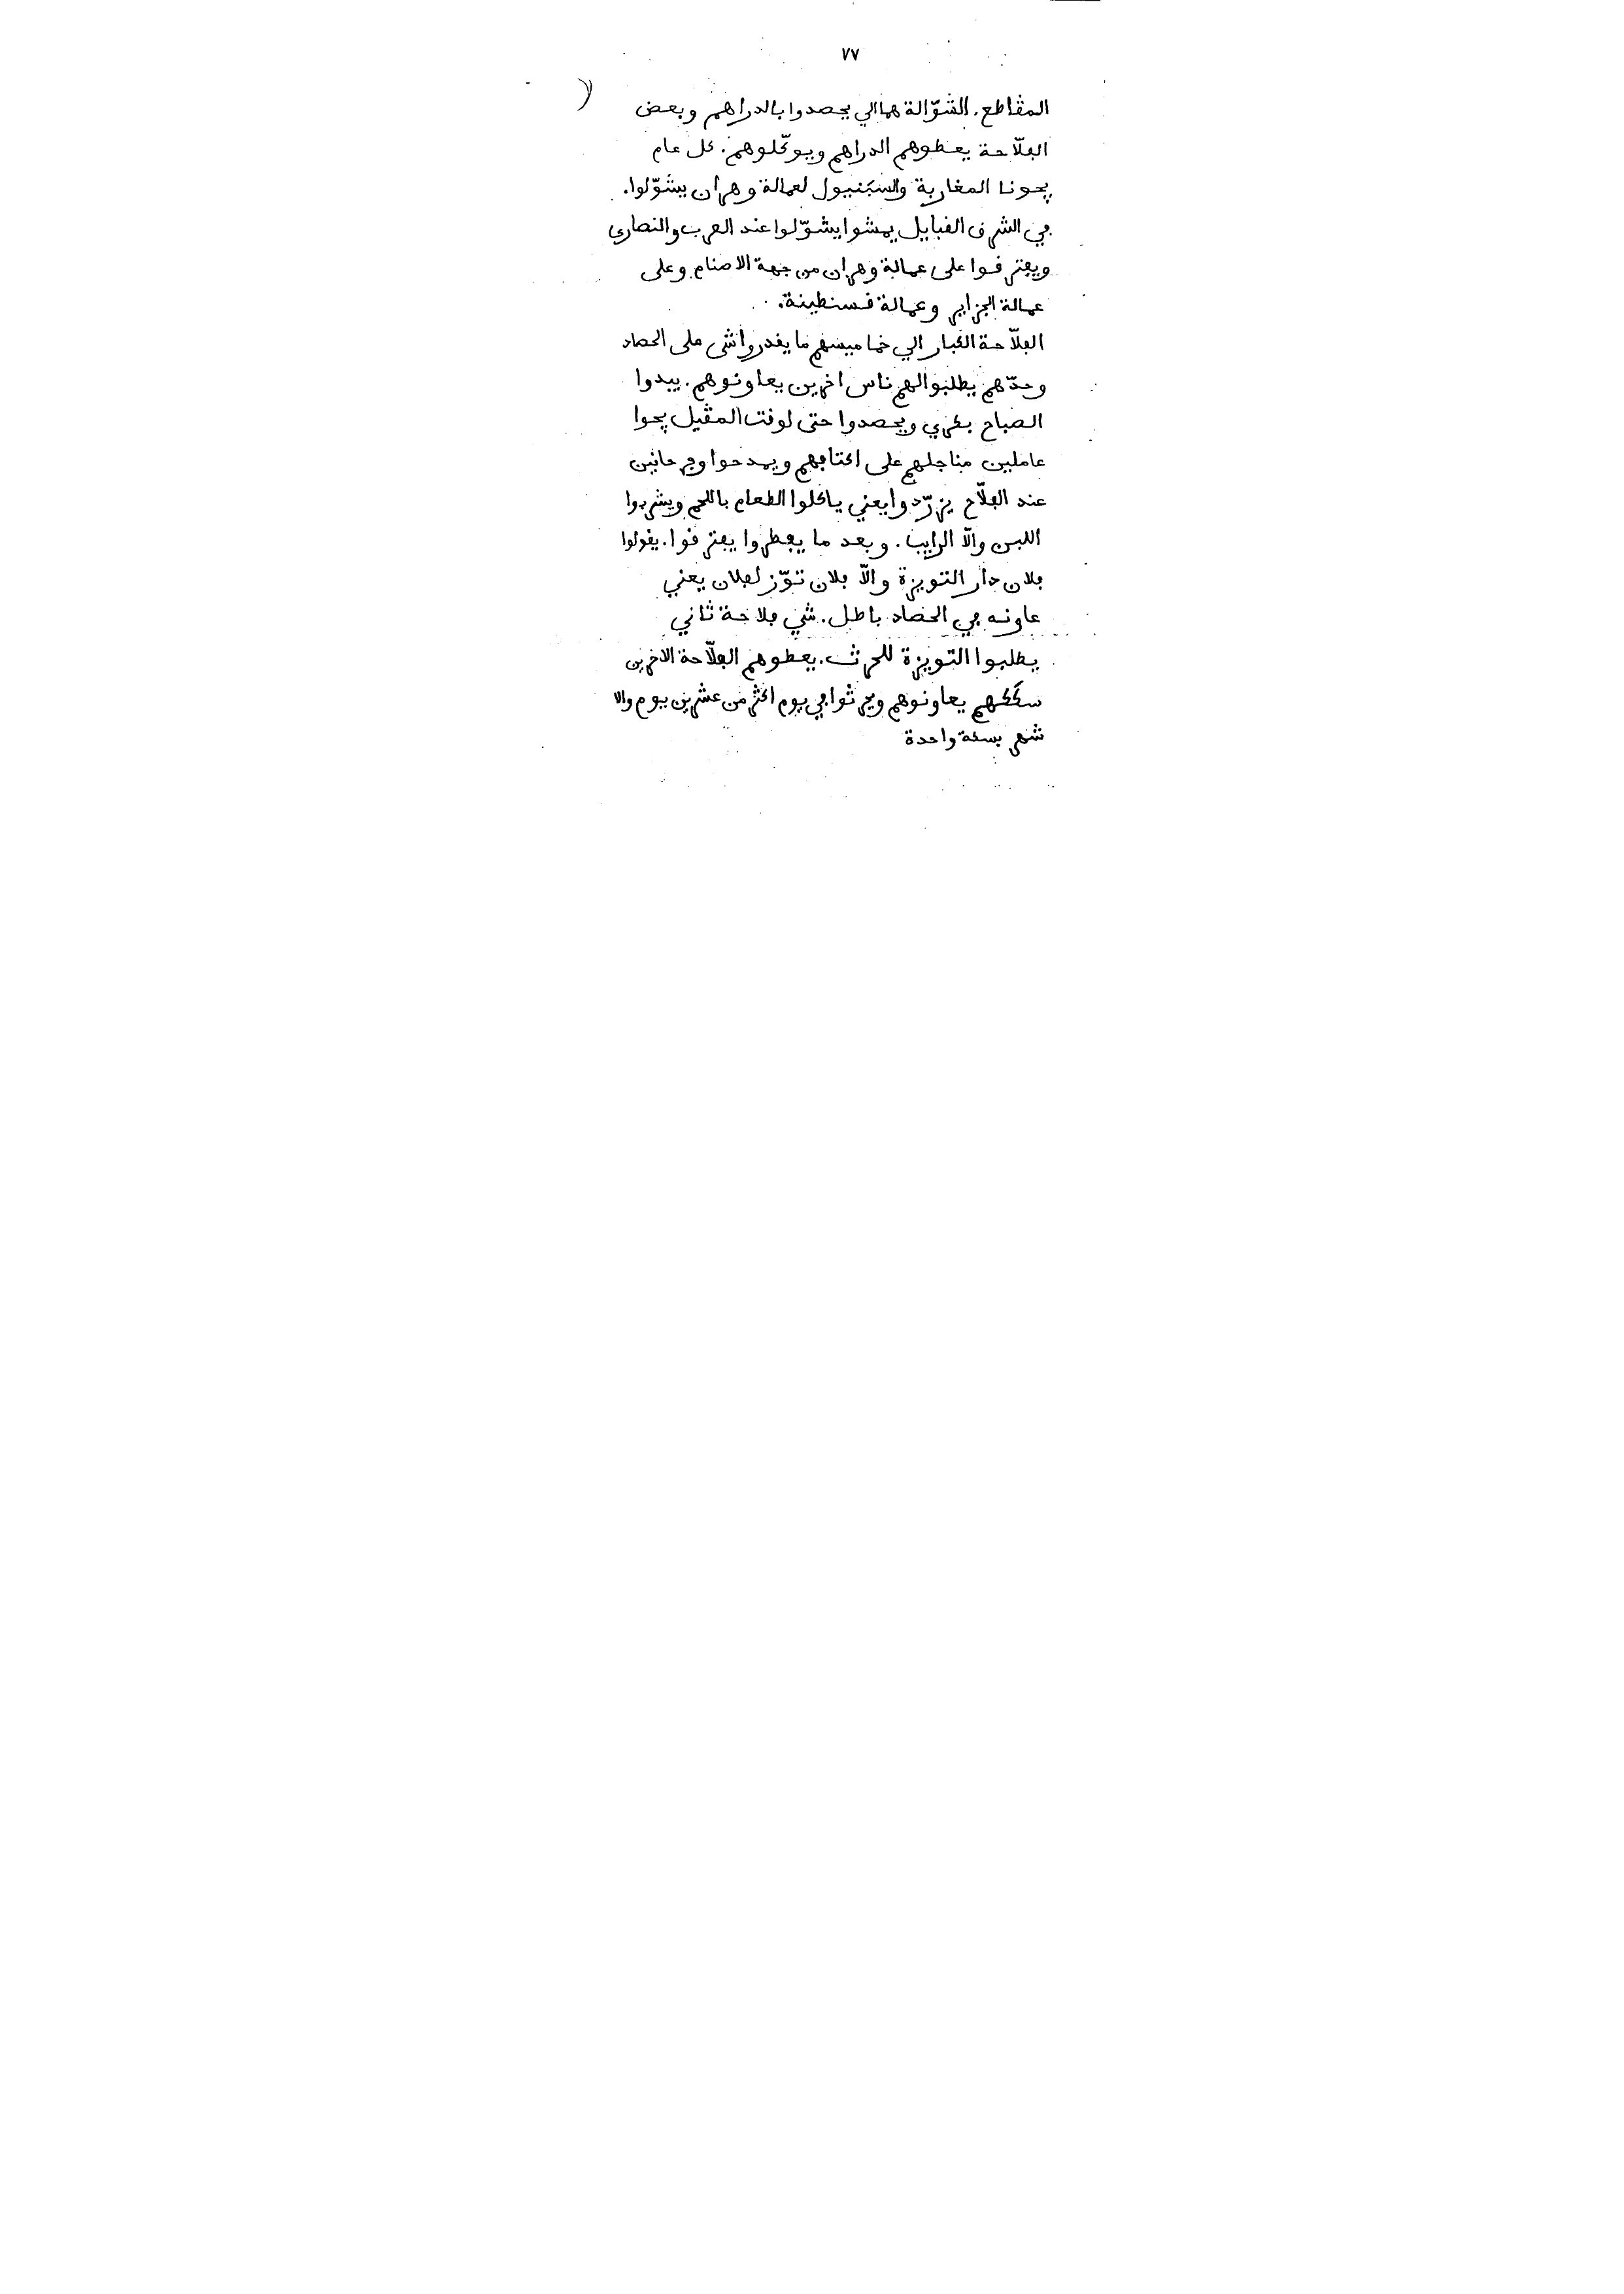 ٧٧
المڨاطع. الشوّالة هما الي يحصدوا بالدراهم وبعض
الڢلّاحة يعطوهم الدراهم ويوكّلوهم. كل عام
يجونا المغاربة والسبَنيول لعمالة وهران يشَوّلوا.
ڢي الشرڧ الڧبايل يمشوا يشوّلوا عند العرب والنصارى
ويڢترڧوا على عمالة وهران من جهة الاصنام وعلى
عمالة الجزاير وعمالة ڧسنطينة.
الڢلّاحة الكبار الي خماميسهم ما يڧدرواشى على الحصاد
وحدّهم يطلبوا لهم ناس اخرين يعاونوهم. يبدوا
الصباح بكري ويحصدوا حتى لوڧت المڨيل يجوا
عاملين مناجلهم على اكتاڢهم ويمدحوا وڢرحانين
عند الڢلّاح يزرّدوا يعني ياكلوا الطعام باللحم ويشربوا
اللبن والّا الرايب. وبعد ما يڢطروا يڢترڧوا. يڧولوا
ڢلان دار التويزة والّا ڢلان توّز لڢلان يعني
عاونه ڢي الحصاد باطل. شي ڢلاحة ثاني
يطلبوا التويزة للحرث. يعطوهم الڢلّاحة الاخرين
سكَكهم يعاونوهم ويحرثوا ڢي يوم اكثر من عشرين يوم والا
شهر بسكة واحدة